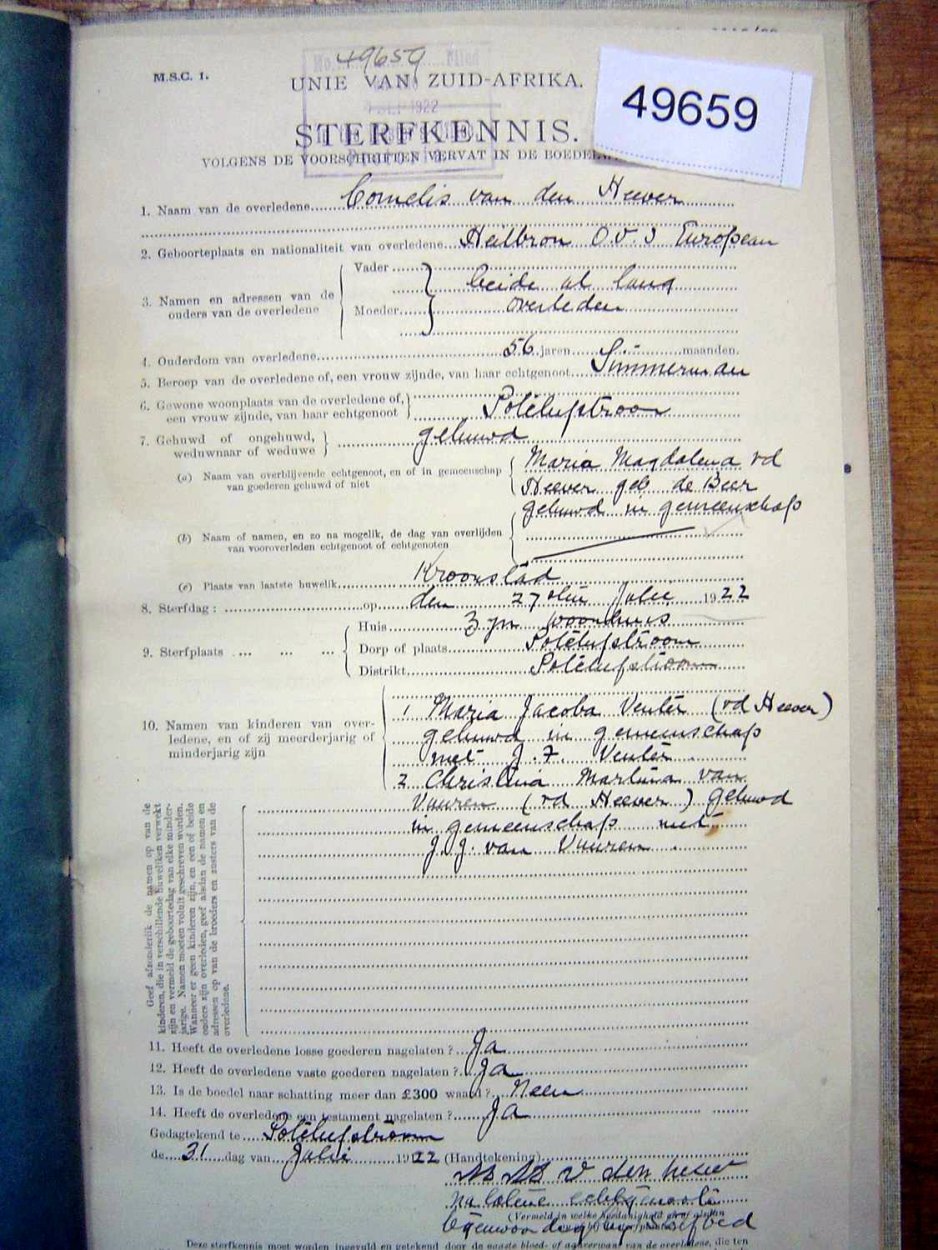 49659
No. Filed
49659
M.S.C. 1.
UNIE VAN ZUID-AFRIKA.
1922
STERFKENNIS.
VOLGENS DE VOORSCHRIFTEN VERVAT IN DE
1. Naam van de overledene Cornelis van den Heever
2. Geboorteplaats en nationaliteit van overledene Heilbron O.V.S European
3. Namen en adressen van de ouders van de overledene
Vader
Moeder
beide al lang
overleden
4. Ouderdom van overledene 56 jaren maanden.
5. Beroep van de overledene of, een vrouw zijnde, van haar echtgenoot Timmerman
6. Gewone woonplaats van de overledene of,
een vrouw zijnde, van haar echtgenoot Potchefstroom
7. Gehuwd of ongehuwd,
weduwnaar of weduwe gehuwd
(a) Naam van overblijvende echtgenoot, en of in gemeenschap
van goederen gehuwd of niet
Maria Magdalena vd
Heever geb de Beer
gehuwd in gemeenschap
(b) Naam of namen, en zo na mogelik, de dag van overlijden
van vooroverleden echtgenoot of echtgenoten
(c) Plaats van laatste huwelik Kroonstad
8. Sterfdag : op den 27 Julie 1922
9. Sterfplaats
Huis Zyn woonhuis
Dorp of plaats Potchefstroom
Distrikt Potchefstroom
10. Namen van kinderen van over-
ledene, en of zij meerderjarig of
minderjarig zijn
1 Maria Jacoba Venter (vd Heever)
gehuwd in gemeenschap
met J. F. Venter
2 Christina Martina van
Vuuren (vd Heever) gehuwd
in gemeenschap met
J. J. van Vuuren
Geef afzonderlik de namen op van de
kinderen, die in verschillende huweliken verwekt
zijn en vermeld de geboortedag van elke minder-
jarige. Namen moeten voluit geschreven worden.
Wanneer er geen kinderen zijn, en een of beide
ouders zijn overleden, geef alsdan de namen en
adressen op van de broeders en zusters van de
overledene.
11. Heeft de overledene losse goederen nagelaten ? Ja
12. Heeft de overledene vaste goederen nagelaten ? Ja
13. Is de boedel naar schatting meer dan £300 waard ? Neen
14. Heeft de overledene een testament nagelaten ? Ja
Gedagtekend te Potchefstroom
de 31 dag van Julie 1922 (Handtekening)
v den heever
(Vermeld in welke hoedanigheid
Deze sterfkennis moet worden ingevuld en getekend door de naaste bloed- of aanverwant van de overledene, die ten